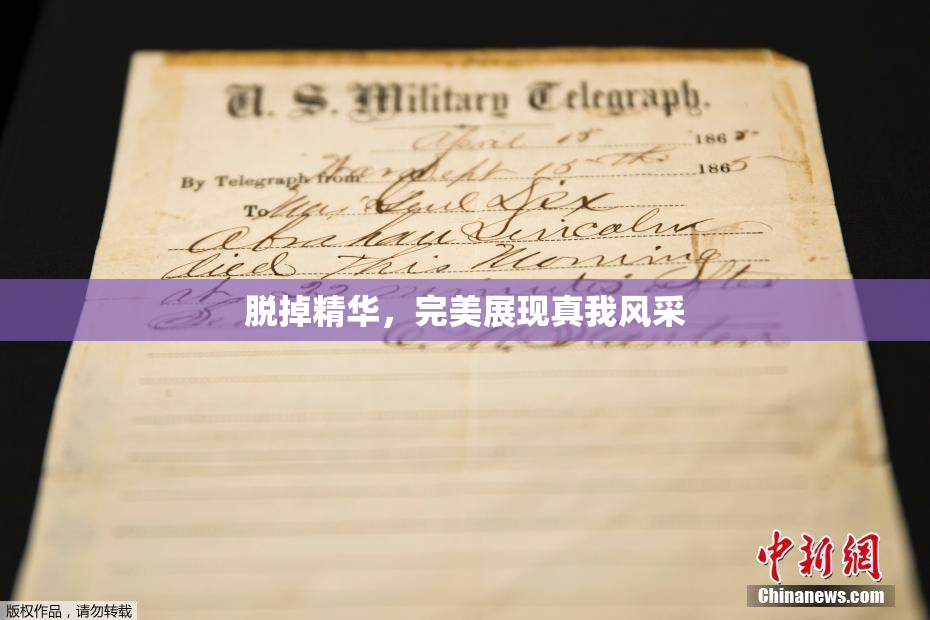 U. S. Military Telegraph.
April 15 1865
By Telegraph from War Dept 15th 1865
To Maj Genl Dix
Abraham Lincoln
died This Morning
at 22 minutes after
脱掉精华，完美展现真我风采
E. M. Stanton
中新網
Chinanews.com
版权作品，请勿转载